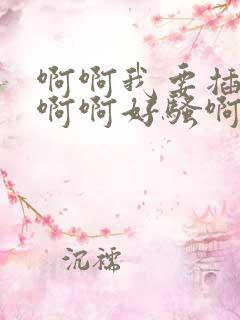 啊啊我要插
啊啊好骚啊
沉襦